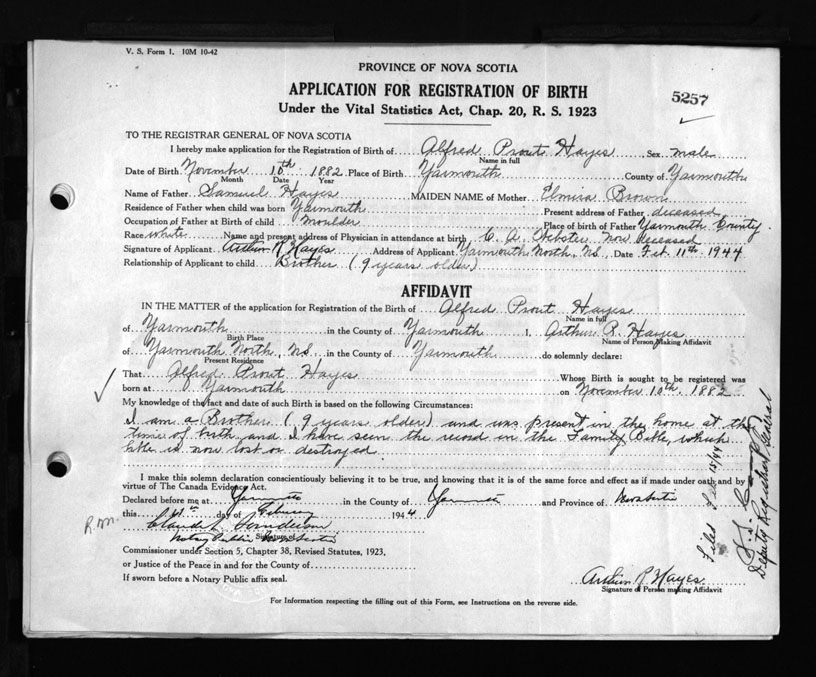 V. S. Form 1. 10M 10-42
PROVINCE OF NOVA SCOTIA
APPLICATION FOR REGISTRATION OF BIRTH
5257
Under the Vital Statistics Act, Chap. 20, R. S. 1923
TO THE REGISTRAR GENERAL OF NOVA SCOTIA
I hereby make application for the Registration of Birth of Alfred Prout Hayes Sex male
Name in full
Date of Birth November 10th 1882 Place of Birth Yarmouth County of Yarmouth
Month Date Year
Name of Father Samuel Hayes MAIDEN NAME of Mother Elmira Brown
Residence of Father when child was born Yarmouth Present address of Father deceased
Occupation of Father at Birth of child Moulder Place of birth of Father Yarmouth County
Race white Name and present address of Physician in attendance at birth C. A. Webster Now deceased
Signature of Applicant Arthur R Hayes Address of Applicant Yarmouth North, N.S. Date Feb. 11th 1944
Relationship of Applicant to child Brother (9 years older)
AFFIDAVIT
IN THE MATTER of the application for Registration of the Birth of Alfred Prout Hayes
Name in full
of Yarmouth in the County of Yarmouth I, Arthur R. Hayes
Birth Place Name of Person Making Affidavit
of Yarmouth North, N.S. in the County of Yarmouth do solemnly declare:
Present Residence
That Alfred Prout Hayes Whose Birth is sought to be registered was
born at Yarmouth on November 10th, 1882
My knowledge of the fact and date of such Birth is based on the following Circumstances:
I am a Brother (9 years older) and was present in the home at the
time of birth and I have seen the record in the Family Bible, which
bible is now lost or destroyed.
I make this solemn declaration conscientiously believing it to be true, and knowing that it is of the same force and effect as if made under oath and by
virtue of The Canada Evidence Act.
Declared before me at Yarmouth in the County of Yarmouth and Province of Nova Scotia
this 11th day of February 1944
R.M.
Claude L.
Notary Public Nova Scotia
Signature of
Commissioner under Section 5, Chapter 38, Revised Statutes, 1923,
or Justice of the Peace in and for the County of
If sworn before a Notary Public affix seal.
Arthur R Hayes
Signature of Person making Affidavit
For Information respecting the filling out of this Form, see Instructions on the reverse side.
Filed Feb 15/44
Deputy Registrar General